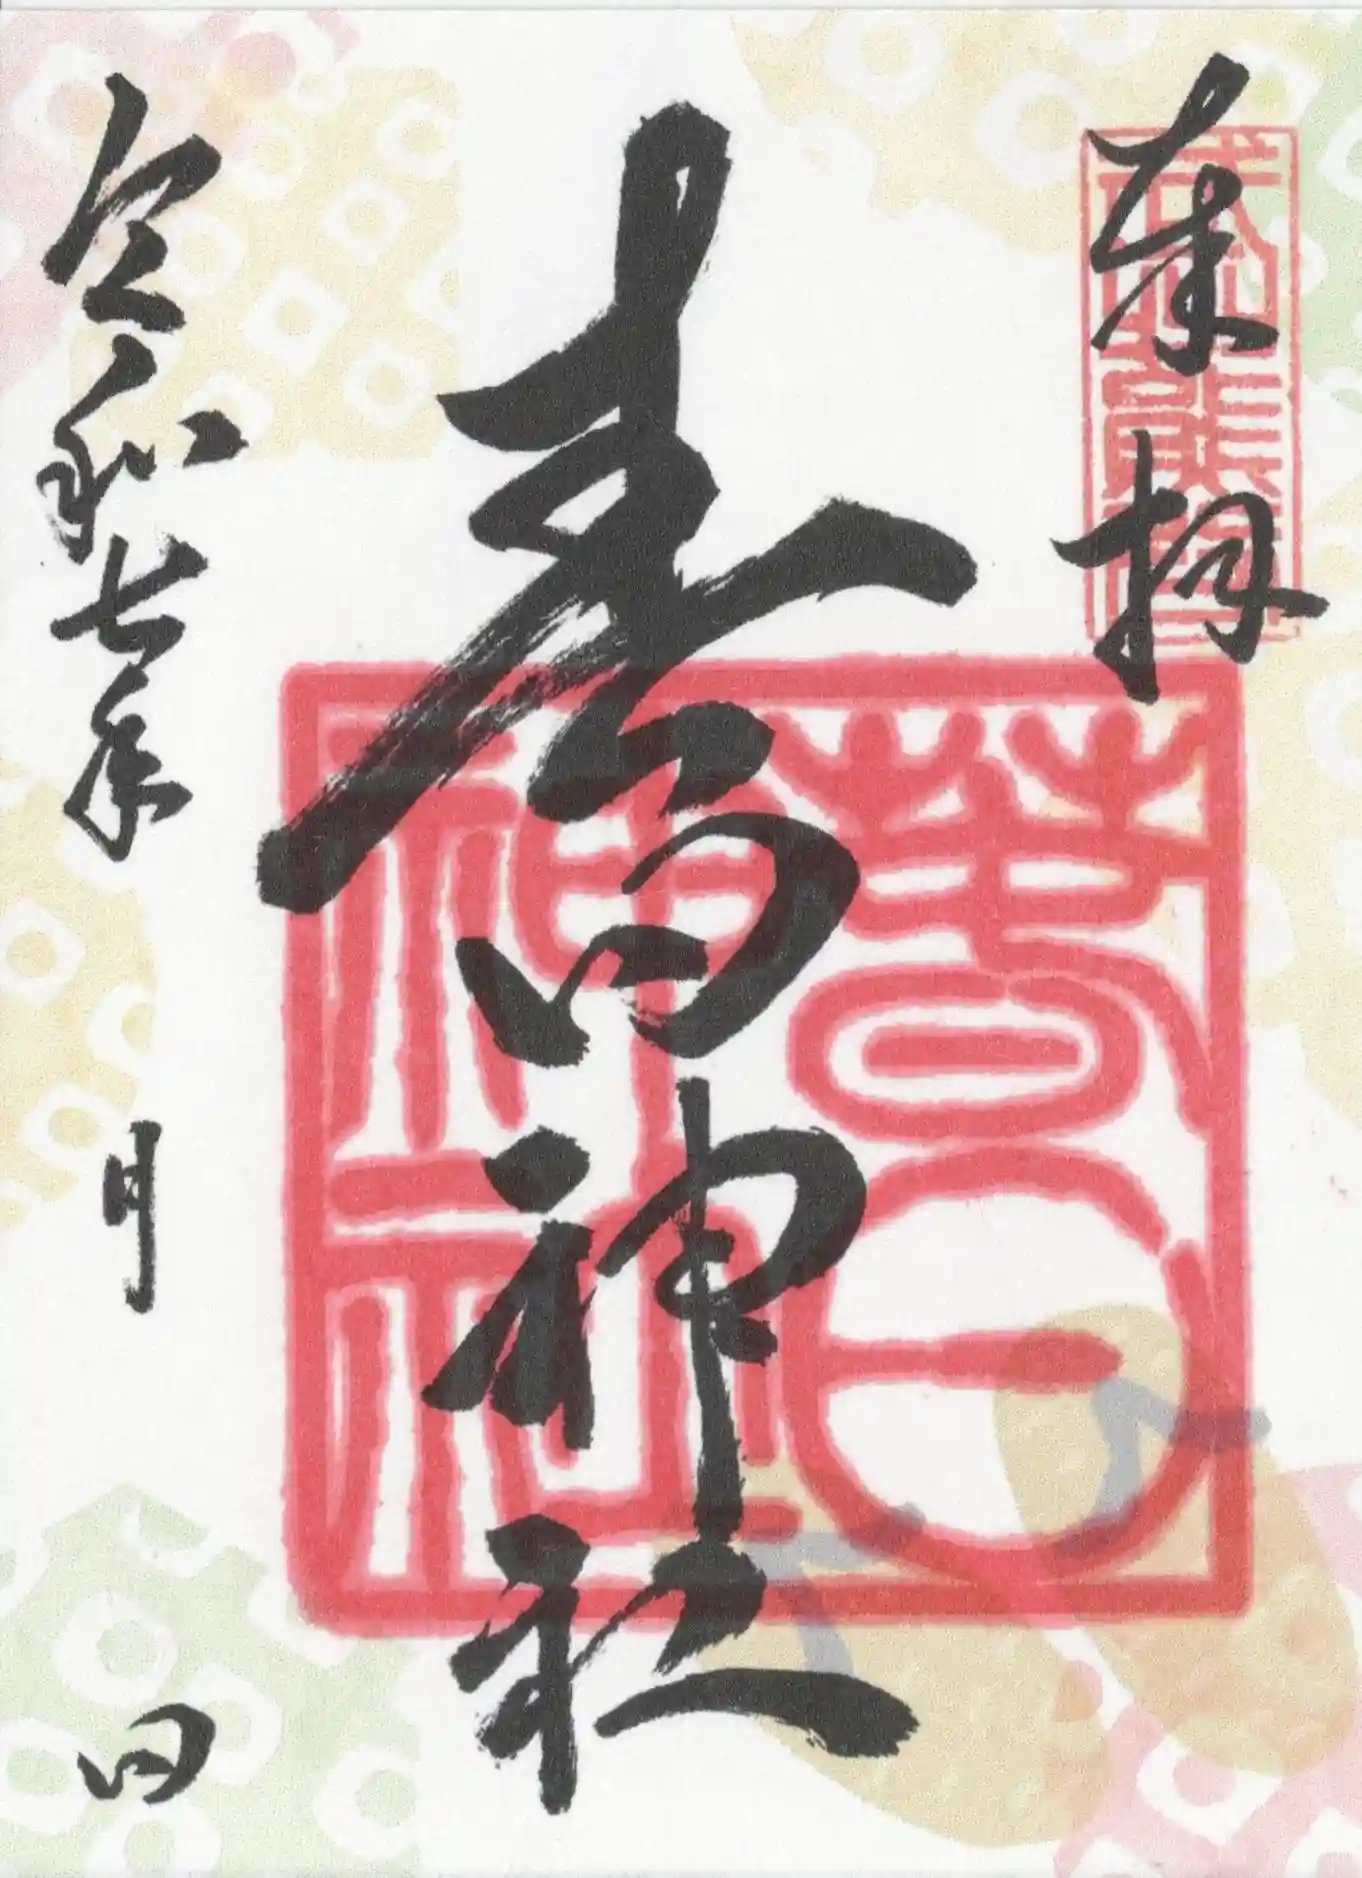 奉拝
春日神社
令和七年 月 日
春日
神社